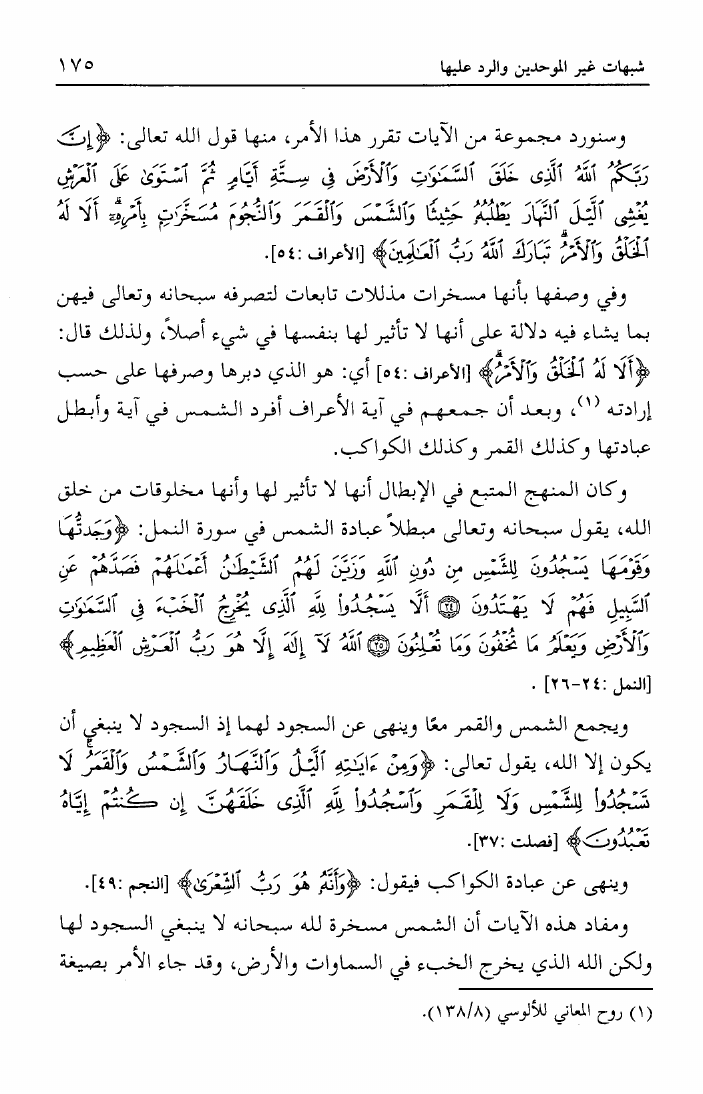 شبهات غير الموحدين والرد عليها ١٧٥
وسنورد مجموعة من الآيات تقرر هذا الأمر، منها قول الله تعالى: ﴿إِنَّ
رَبَّكُمُ ٱللَّهُ ٱلَّذِى خَلَقَ ٱلسَّمَٰوَٰتِ وَٱلْأَرْضَ فِى سِتَّةِ أَيَّامٍ ثُمَّ ٱسْتَوَىٰ عَلَى ٱلْعَرْشِ
يُغْشِى ٱلَّيْلَ ٱلنَّهَارَ يَطْلُبُهُۥ حَثِيثًا وَٱلشَّمْسَ وَٱلْقَمَرَ وَٱلنُّجُومَ مُسَخَّرَٰتٍۭ بِأَمْرِهِۦٓ ۗ أَلَا لَهُ
ٱلْخَلْقُ وَٱلْأَمْرُ ۗ تَبَارَكَ ٱللَّهُ رَبُّ ٱلْعَٰلَمِينَ﴾ [الأعراف :٥٤].
وفي وصفها بأنها مسخرات مذللات تابعات لتصرفه سبحانه وتعالى فيهن
بما يشاء فيه دلالة على أنها لا تأثير لها بنفسها في شيء أصلاً، ولذلك قال:
﴿أَلَا لَهُ ٱلْخَلْقُ وَٱلْأَمْرُ ۗ﴾ [الأعراف :٥٤] أي: هو الذي دبرها وصرفها على حسب
إرادته (١)، وبعد أن جمعهم في آية الأعراف أفرد الشمس في آية وأبطل
عبادتها وكذلك القمر وكذلك الكواكب.
وكان المنهج المتبع في الإبطال أنها لا تأثير لها وأنها مخلوقات من خلق
الله، يقول سبحانه وتعالى مبطلاً عبادة الشمس في سورة النمل: ﴿وَجَدتُّهَا
وَقَوْمَهَا يَسْجُدُونَ لِلشَّمْسِ مِن دُونِ ٱللَّهِ وَزَيَّنَ لَهُمُ ٱلشَّيْطَٰنُ أَعْمَٰلَهُمْ فَصَدَّهُمْ عَنِ
ٱلسَّبِيلِ فَهُمْ لَا يَهْتَدُونَ ۝٢٤ أَلَّا يَسْجُدُوا۟ لِلَّهِ ٱلَّذِى يُخْرِجُ ٱلْخَبْءَ فِى ٱلسَّمَٰوَٰتِ
وَٱلْأَرْضِ وَيَعْلَمُ مَا تُخْفُونَ وَمَا تُعْلِنُونَ ۝٢٥ ٱللَّهُ لَآ إِلَٰهَ إِلَّا هُوَ رَبُّ ٱلْعَرْشِ ٱلْعَظِيمِ﴾
[النمل :٢٤-٢٦] .
ويجمع الشمس والقمر معًا وينهى عن السجود لهما إذ السجود لا ينبغي أن
يكون إلا الله، يقول تعالى: ﴿وَمِنْ ءَايَٰتِهِ ٱلَّيْلُ وَٱلنَّهَارُ وَٱلشَّمْسُ وَٱلْقَمَرُ ۚ لَا
تَسْجُدُوا۟ لِلشَّمْسِ وَلَا لِلْقَمَرِ وَٱسْجُدُوا۟ لِلَّهِ ٱلَّذِى خَلَقَهُنَّ إِن كُنتُمْ إِيَّاهُ
تَعْبُدُونَ﴾ [فصلت :٣٧].
وينهى عن عبادة الكواكب فيقول: ﴿وَأَنَّهُۥ هُوَ رَبُّ ٱلشِّعْرَىٰ﴾ [النجم :٤٩].
ومفاد هذه الآيات أن الشمس مسخرة لله سبحانه لا ينبغي السجود لها
ولكن الله الذي يخرج الخبء في السماوات والأرض، وقد جاء الأمر بصيغة
(١) روح المعاني للألوسي (١٣٨/٨).